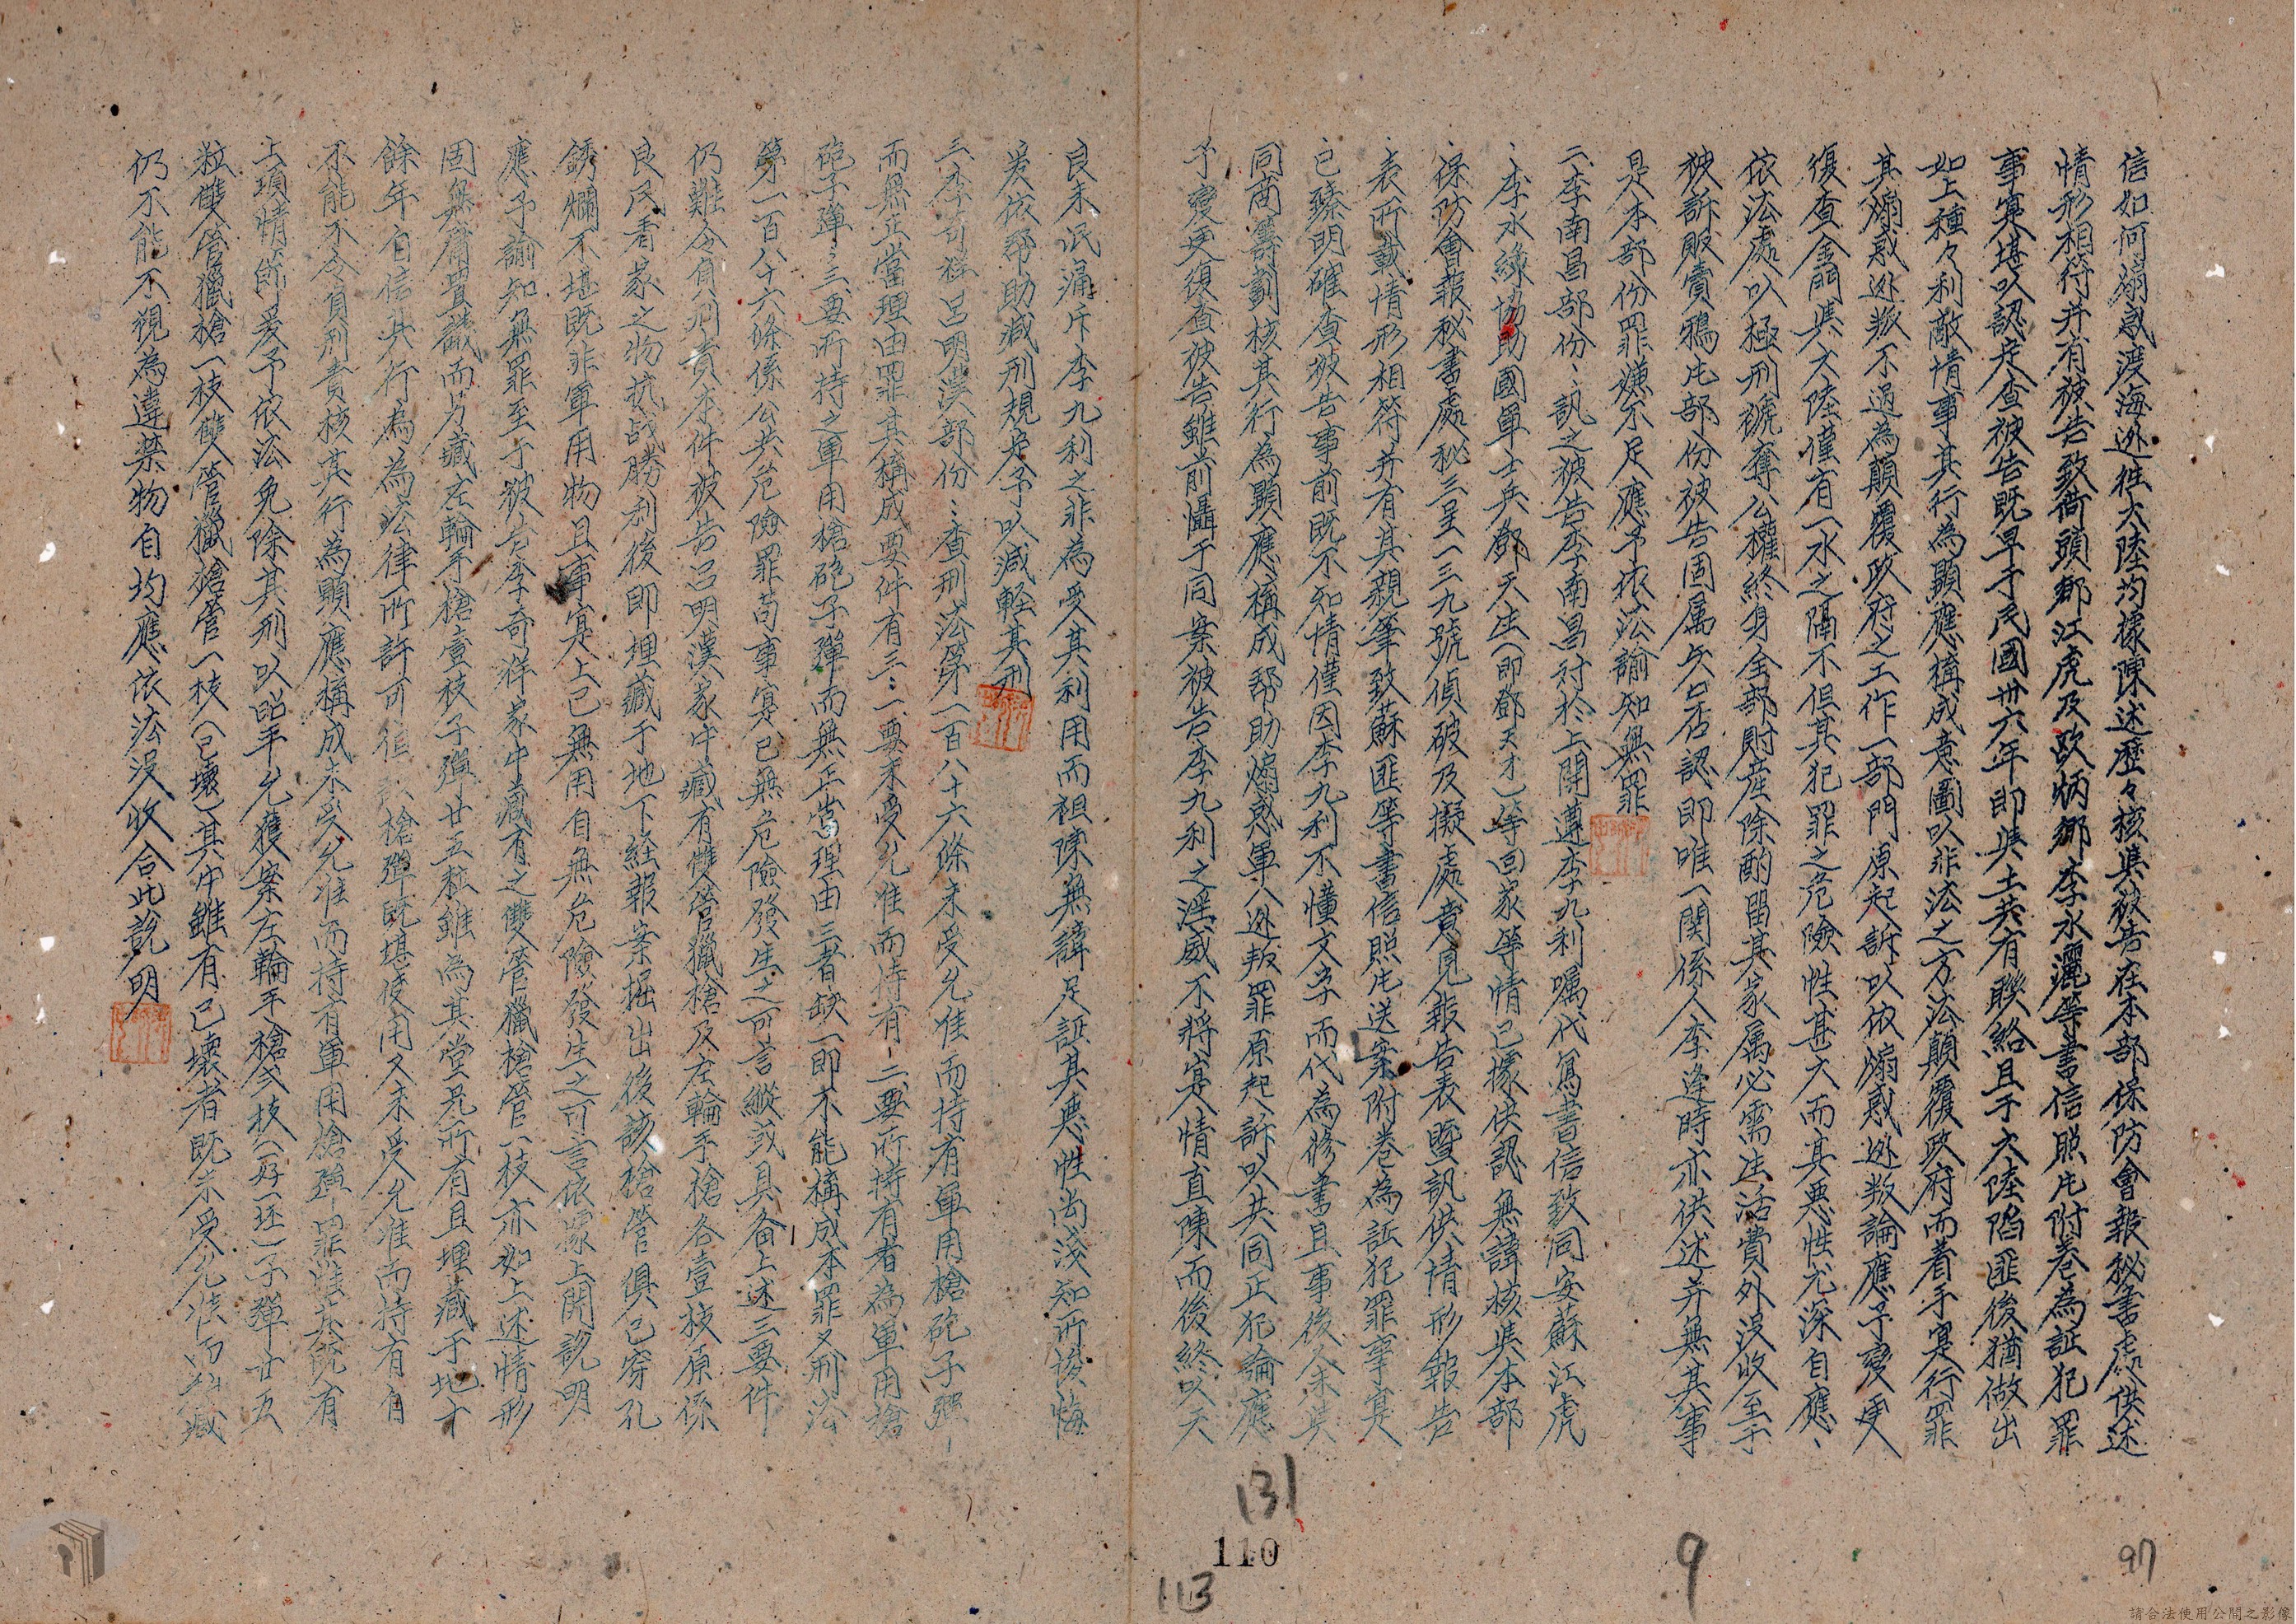 信如何煽惑渡海逃往大陸均據陳述歷々核與被告在本部保防會報秘書處供述
情形相符并有被告致嵜頭鄉江虎及歐炳鄉李水灑等書信照片附卷為証犯罪
事寔堪以認定查被告既早于民國卅六年即與土共有聯絡且于大陸陷匪後猶做出
如上種々利敵情事其行為顯應構成意圖以非法之方法顛覆政府而着手寔行罪
其煽惑逃叛不過為顛覆政府之工作一部門原起訴以依煽惑逃叛論應予變更
復查金門與大陸僅有一水之隔不但其犯罪之危險性甚大而其悪性尤深自應、
依法處以極刑褫奪公權終身全部財產除酌留其家属必需生活費外沒收至于
被訴販賣鴉片部份被告固属矢口否認即唯一関係人李逢時亦供述并無其事
是本部份罪嫌不足應予依法諭知無罪
二、李南昌部份、訊之被告李南昌対於上開遵李九利嘱代寫書信致同安蘇江虎
、李水綠協助國軍士兵鄧天生(即鄧天才)等回家等情已據供認無諱核與本部
保防會報秘書處秘三呈一三九號偵破及擬處意見報告表暨訊供情形報告
表所載情形相符并有其親筆致蘇匪等書信照片送案附卷為証犯罪事寔
已臻明確查被告事前既不知情僅因李九利不懂文字而代為修書且事後余其
同商籌劃核其行為顯應構成帮助煽惑軍人逃叛罪原起訴以共同正犯論應
予變更復查被告雖前懾于同案被告李九利之淫威不將寔情直陳而後終以天
良未泯痛斥李九利之非為受其利用而袒陳無諱足証其悪性尚淺知所悛悔
爰依帮助減刑規定予以減輕其刑
三、李奇祥呂明漢部份、查刑法第一百八十六條未受允准而持有軍用槍砲子彈
而無正當理由罪其構成要件有三、一要未受允准而持有、二要所持有者為軍用槍
砲子彈、三要所持之軍用槍砲子彈而無正當理由三者缺一即不能構成本罪又刑法
第一百八十六條係公共危險罪苟事寔已無危險發生之可言縱或具备上述三要件
仍難令負刑責本件被告呂明漢家中藏有雙管獵槍及左輪手槍各壹核原係
良民看家之物抗战勝利後即埋藏于地下経報案掘出後該槍管俱已穿孔
銹爛不堪既非軍用物且事寔上已無用自無危險發生之可言依據上開說明
應予諭知無罪至于被告李奇祥家中藏有之雙管獵槍管一枝亦如上述情形
固無庸置議而另藏左輪手槍壹枝子彈廿五粒雖為其堂兄所有且埋藏于地才
餘年自信其行為為法律所許可但該槍彈既堪使用又未受允准而持有自
不能不令負刑責核其行為顯應構成未受允准而持有軍用槍彈罪惟其既有
上項情節爰予依法免除其刑以昭平允獲案左輪手槍弍枝(好一坯一)子彈廿五
粒雙管獵槍一枝雙管獵槍管一枝(已壞)其中雖有已壞者既未受允准而埋藏
仍不能不視為違禁物自均應依法沒收合此說明
131
110
113
9
97
請合法使用公開之影像